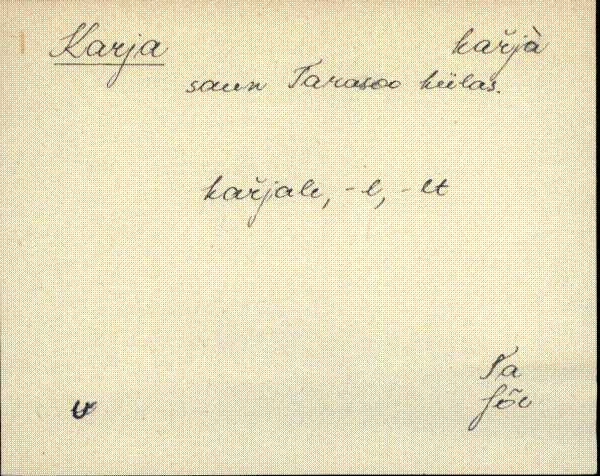 Karja kařjà
saun Tarasoo külas.
kařjale, -l, -lt
Ta
Jõe
v